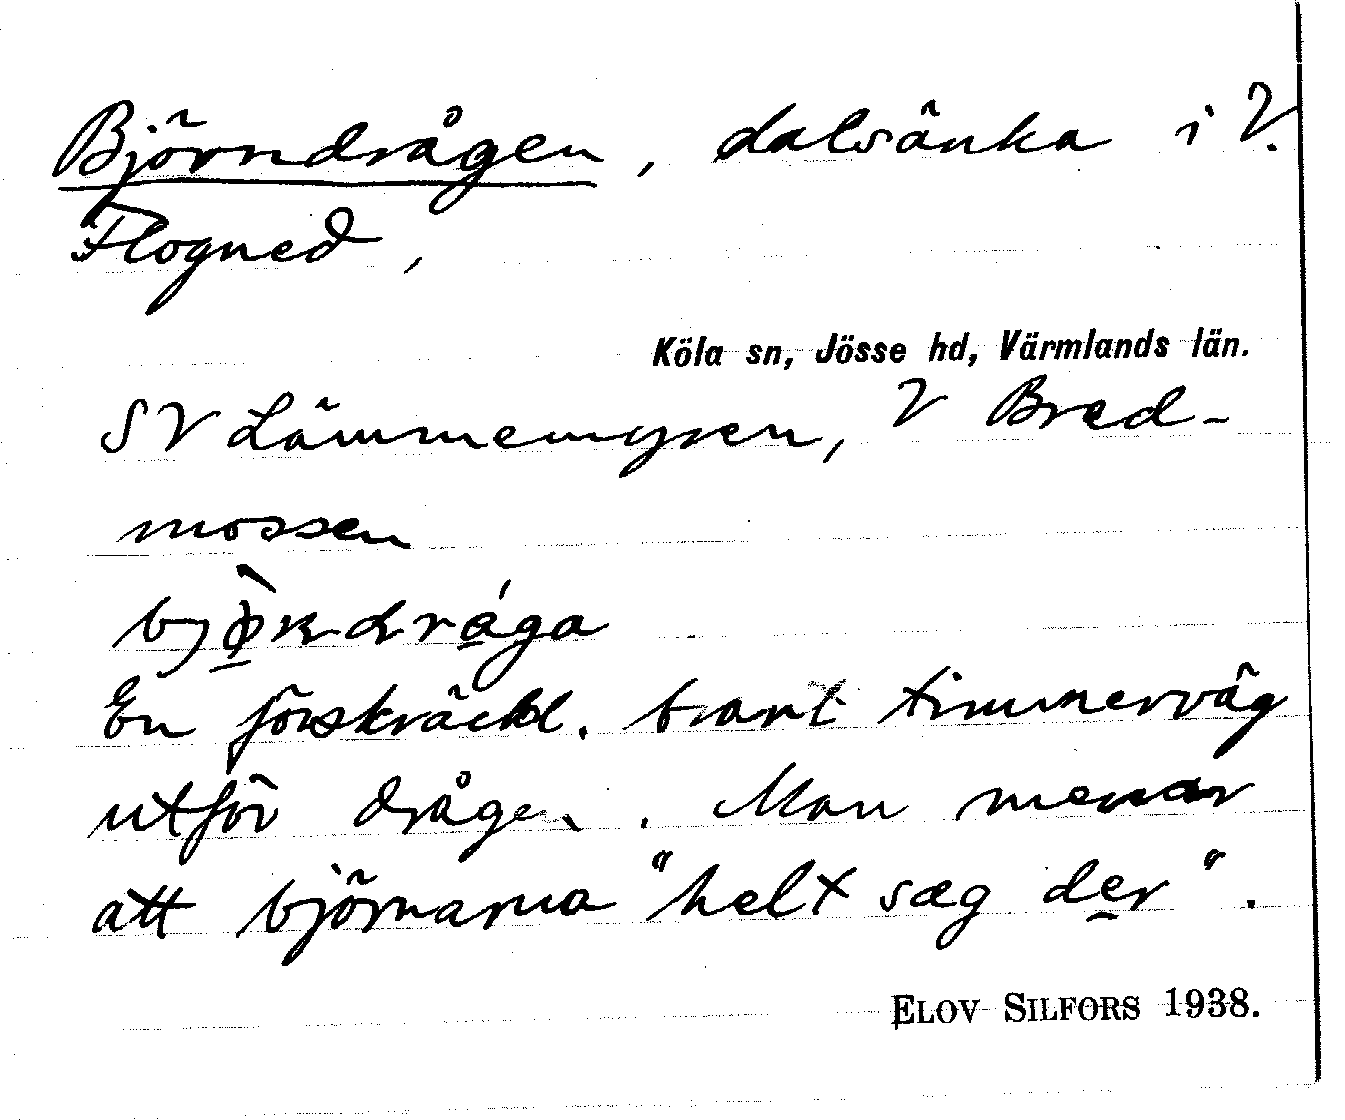 Björndrågen, dalsänka i V.
Flogned,
Köla sn, Jösse hd, Värmlands län.
SV Lämmemyren, V Bred-
mossen
En förskräckl. brant timmerväg
utför drågen. Man menar
att björnarna "helt sæg der".
ELOV SILFORS 1938.